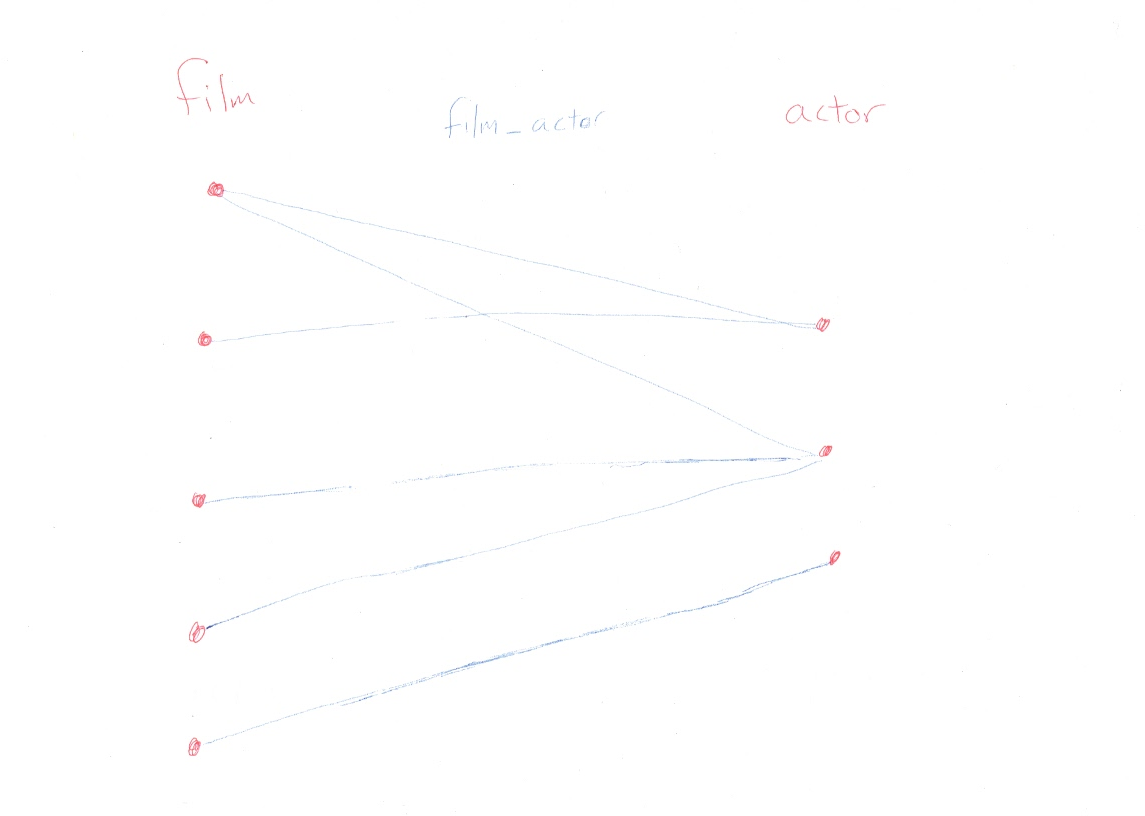 film
film_actor
actor